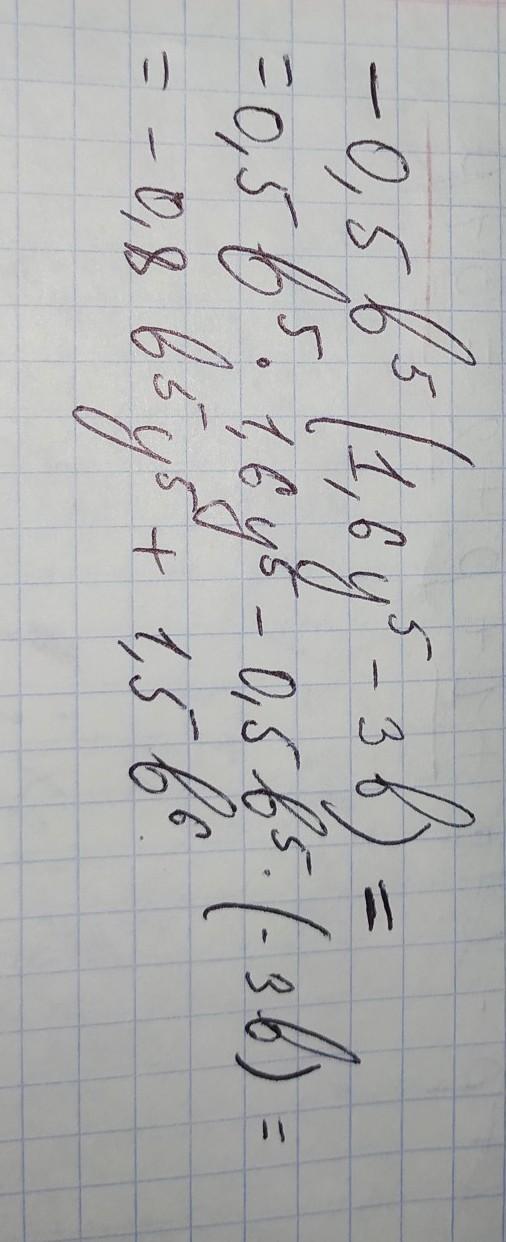 -0,5 b⁵ (1,6y⁵ - 3b) =
= 0,5 b⁵ · 1,6y⁵ - 0,5b⁵ · (-3b) =
= -0,8 b⁵y⁵ + 1,5 b⁶.